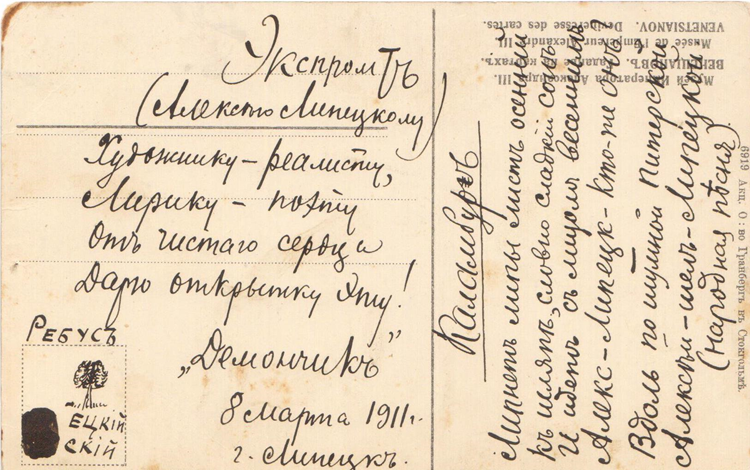 Экспромтъ
(Алексѣю Липецкому)
Художнику-реалисту,
Лирику-поэту
Отъ чистаго сердца
Дарю открытку эту!
„Демончикъ"
8 Марта 1911 г.
г. Липецкъ.
Ребусъ
ецкій
скій
Каламбуръ
Липнетъ липы листъ осенній
Къ шляпѣ, словно сладкій сокъ
И идетъ съ лицомъ весеннимъ
Алекс-Липецк-Кто-же онъ?
Вдоль по шумной питерской
Алексѣй-шелъ-Липецкой
(народная пѣсня)
Музей Императора Александра III.
ВЕНЕЦІАНОВЪ. Гаданье на картахъ.
Musée de l'Empereur Alexandre III.
VENETSIANOV. Devineresse des cartes.
6919 Акц. О: во Гранбергъ въ Стокгольмѣ.